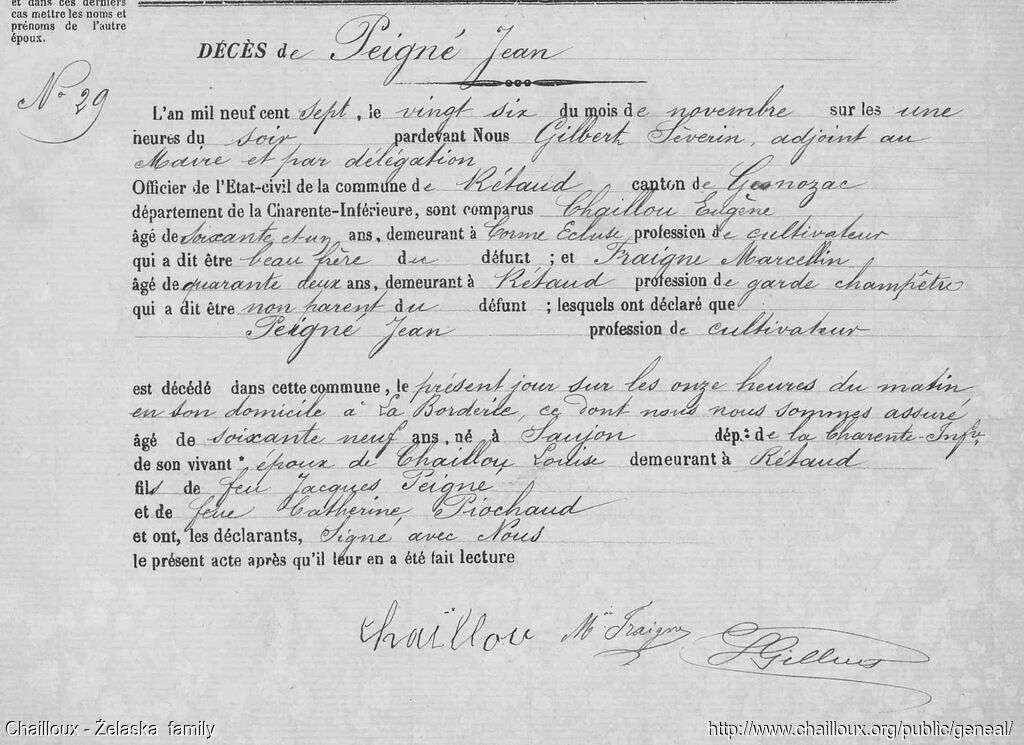 et dans ces derniers
cas mettre les noms et
prénoms de l'autre
époux.
DÉCÈS de Peigné Jean
No 29
L'an mil neuf cent sept, le vingt six du mois de novembre sur les une
heures du soir pardevant Nous Gilbert Séverin, adjoint au
Maire et par délégation
Officier de l'Etat-civil de la commune de Rétaud canton de Gemozac
département de la Charente-Inférieure, sont comparus Chaillou Eugène
âgé de soixante et un ans, demeurant à Corme Ecluse profession de cultivateur
qui a dit être beau frère du défunt ; et Fraigne Marcellin
âgé de quarante deux ans, demeurant à Rétaud profession de garde champêtre
qui a dit être non parent du défunt ; lesquels ont déclaré que
Peigné Jean profession de cultivateur
est décédé dans cette commune, le présent jour sur les onze heures du matin
en son domicile à La Borderie, ce dont nous nous sommes assuré
âgé de soixante neuf ans, né à Saujon dép.t de la Charente-Infre
de son vivant * époux de Chaillou Louise demeurant à Rétaud
fils de feu Jacques Peigné
et de feue Catherine Piochaud
et ont, les déclarants, Signé avec Nous
le présent acte après qu'il leur en a été fait lecture
Chaillou Min Fraigne
Chailloux - Żelaska family http://www.chailloux.org/public/geneal/